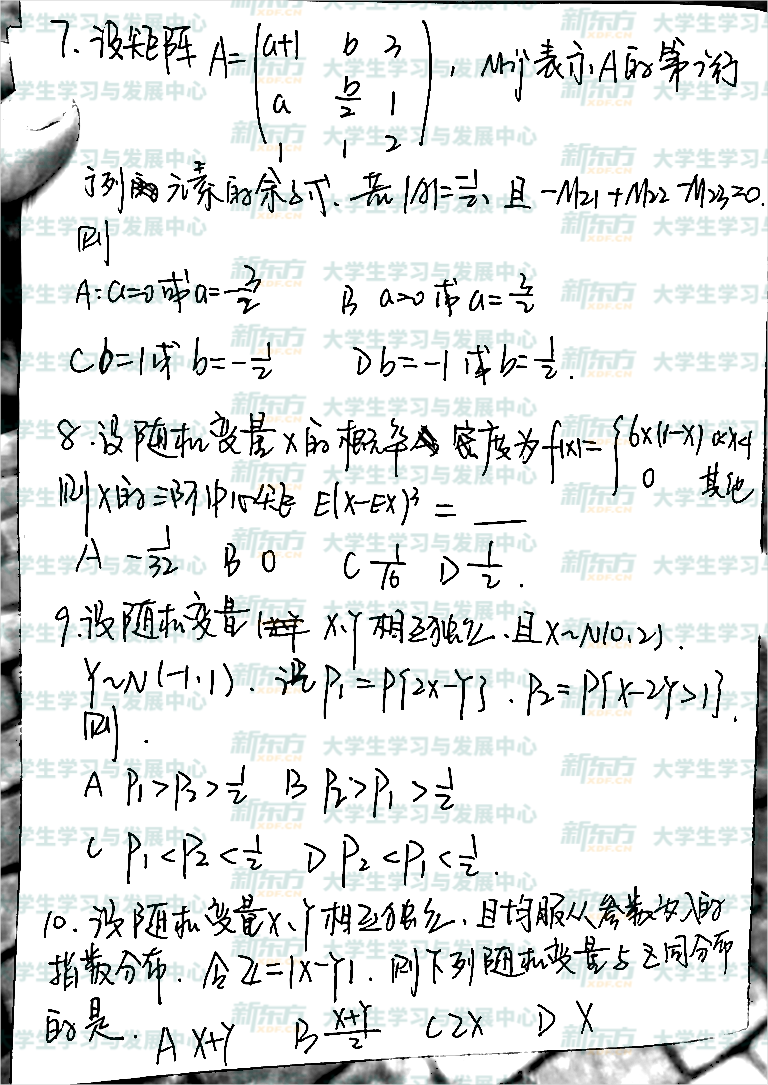 7. 设矩阵 A=(a+1 b 3
a b/2 1
1 1 2), Mij表示A的第i行
j列元素的余子式. 若|A|=-1/2, 且 -M21+M22-M23=0.
则
A: a=0或a=-3/2 B a=0或a=3/2
C b=1或b=-1/2 D b=-1或b=1/2.
8. 设随机变量X的概率密度为f(x)={6x(1-x) 0<x<1
0 其他
则X的三阶中心矩 E(X-EX)³=___
A -1/32 B 0 C 1/16 D 1/2.
9. 设随机变量 X、Y相互独立, 且X~N(0,2).
Y~N(-1,1). 设P1=P{2X-Y}. P2=P{X-2Y>1}.
则.
A P1>P2>1/2 B P2>P1>1/2
C P1<P2<1/2 D P2<P1<1/2.
10. 设随机变量X、Y相互独立, 且均服从参数为λ的
指数分布. 令Z=|X-Y|. 则下列随机变量与Z同分布
的是. A X+Y B (X+Y)/2 C 2X D X
新东方 XDF.CN 大学生学习与发展中心